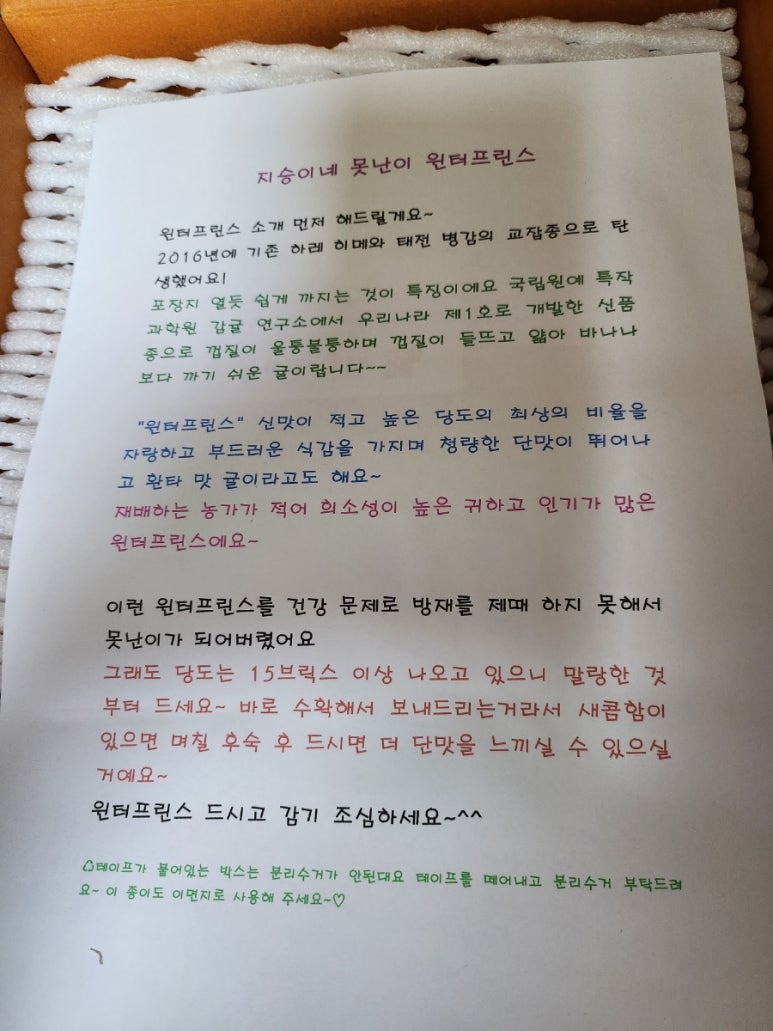 지승이네 못난이 윈터프린스
윈터프린스 소개 먼저 해드릴게요~
2016년에 기존 하레 히메와 태전 병감의 교잡종으로 탄
생했어요!
포장지 열듯 쉽게 까지는 것이 특징이에요 국립원예 특작
과학원 감귤 연구소에서 우리나라 제1호로 개발한 신품
종으로 껍질이 울퉁불퉁하며 껍질이 들뜨고 얇아 바나나
보다 까기 쉬운 귤이랍니다~~
"윈터프린스" 신맛이 적고 높은 당도의 최상의 비율을
자랑하고 부드러운 식감을 가지며 청량한 단맛이 뛰어나
고 환타 맛 귤이라고도 해요~
재배하는 농가가 적어 희소성이 높은 귀하고 인기가 많은
윈터프린스에요~
이런 윈터프린스를 건강 문제로 방재를 제때 하지 못해서
못난이가 되어버렸어요
그래도 당도는 15브릭스 이상 나오고 있으니 말랑한 것
부터 드세요~ 바로 수확해서 보내드리는거라서 새콤함이
있으면 며칠 후숙 후 드시면 더 단맛을 느끼실 수 있으실
거예요~
윈터프린스 드시고 감기 조심하세요~^^
♺테이프가 붙어있는 박스는 분리수거가 안된대요 테이프를 떼어내고 분리수거 부탁드려
요~ 이 종이도 이면지로 사용해 주세요~♡